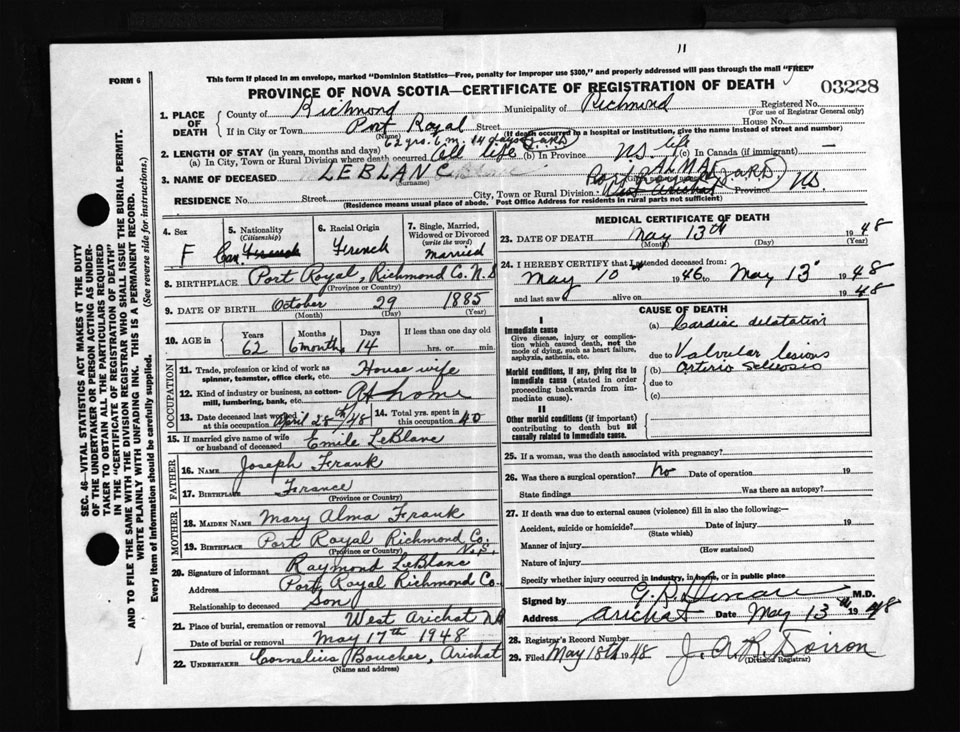 11
FORM 6
This form if placed in an envelope, marked "Dominion Statistics—Free, penalty for improper use $300," and properly addressed will pass through the mail "FREE"
PROVINCE OF NOVA SCOTIA—CERTIFICATE OF REGISTRATION OF DEATH
03228
1. PLACE OF DEATH
County of Richmond Municipality of Richmond Registered No.
(For use of Registrar General only)
If in City or Town Port Royal Street House No.
(Name) (If death occurred in a hospital or institution, give the name instead of street and number)
62 yrs. 6 m. 14 days J.A.R.D.
2. LENGTH OF STAY (in years, months and days)
(a) In City, Town or Rural Division where death occurred All life (b) In Province N.S. life (c) In Canada (if immigrant) —
3. NAME OF DECEASED LEBLANC ALMA
(Surname)
RESIDENCE No. Street City, Town or Rural Division Port Royal J.A.R.D. Province N.S.
(Residence means usual place of abode. Post Office Address for residents in rural parts not sufficient)
4. Sex F
5. Nationality (Citizenship) Can. French
6. Racial Origin French
7. Single, Married, Widowed or Divorced (write the word) married
8. BIRTHPLACE Port Royal, Richmond Co. N.S
(Province or Country)
9. DATE OF BIRTH October 29 1885
(Month) (Day) (Year)
10. AGE in Years 62 Months 6 month Days 14 If less than one day old hrs. or min.
OCCUPATION
11. Trade, profession or kind of work as spinner, teamster, office clerk, etc. House wife
12. Kind of industry or business, as cotton-mill, lumbering, bank, etc. At home
13. Date deceased last worked at this occupation April 28th/48
14. Total yrs. spent in this occupation 40
15. If married give name of wife or husband of deceased Emile LeBlanc
FATHER
16. NAME Joseph Frank
17. BIRTHPLACE France
(Province or Country)
MOTHER
18. MAIDEN NAME Mary Alma Frank
19. BIRTHPLACE Port Royal Richmond Co. N.S.
(Province or Country)
20. Signature of informant Raymond LeBlanc
Address Port Royal Richmond Co
Relationship to deceased Son
21. Place of burial, cremation or removal West Arichat N.S
Date of burial or removal May 17th 1948
22. UNDERTAKER Cornelius Boucher, Arichat
(Name and address)
MEDICAL CERTIFICATE OF DEATH
23. DATE OF DEATH May 13th 1948
(Month) (Day) (Year)
24. I HEREBY CERTIFY that I attended deceased from:
May 10th 1946 to May 13 1948
and last saw alive on 1948
CAUSE OF DEATH
I
Immediate cause
Give disease, injury or complication which caused death, not the mode of dying, such as heart failure, asphyxia, asthenia, etc.
(a) Cardiac delatation
due to Valvular lesions
Morbid conditions, if any, giving rise to immediate cause (stated in order proceeding backwards from immediate cause).
(b) Arterio Sclerosis
due to
(c)
II
Other morbid conditions (if important) contributing to death but not causally related to immediate cause.
25. If a woman, was the death associated with pregnancy?
26. Was there a surgical operation? no Date of operation 19
State findings Was there an autopsy?
27. If death was due to external causes (violence) fill in also the following:—
Accident, suicide or homicide? Date of injury 19
(State which)
Manner of injury
(How sustained)
Nature of injury
Specify whether injury occurred in industry, in home, or in public place
Signed by M.D.
Address Arichat Date May 13th 1948
28. Registrar's Record Number
29. Filed May 18th 1948 J. A. R. Doiron
(Division Registrar)
SEC. 46—VITAL STATISTICS ACT MAKES IT THE DUTY
OF THE UNDERTAKER OR PERSON ACTING AS UNDER-
TAKER TO OBTAIN ALL THE PARTICULARS REQUIRED
IN THE "CERTIFICATE OF REGISTRATION OF DEATH"
AND TO FILE THE SAME WITH THE DIVISION REGISTRAR WHO SHALL ISSUE THE BURIAL PERMIT.
WRITE PLAINLY WITH UNFADING INK. THIS IS A PERMANENT RECORD.
Every item of information should be carefully supplied. (See reverse side for instructions.)